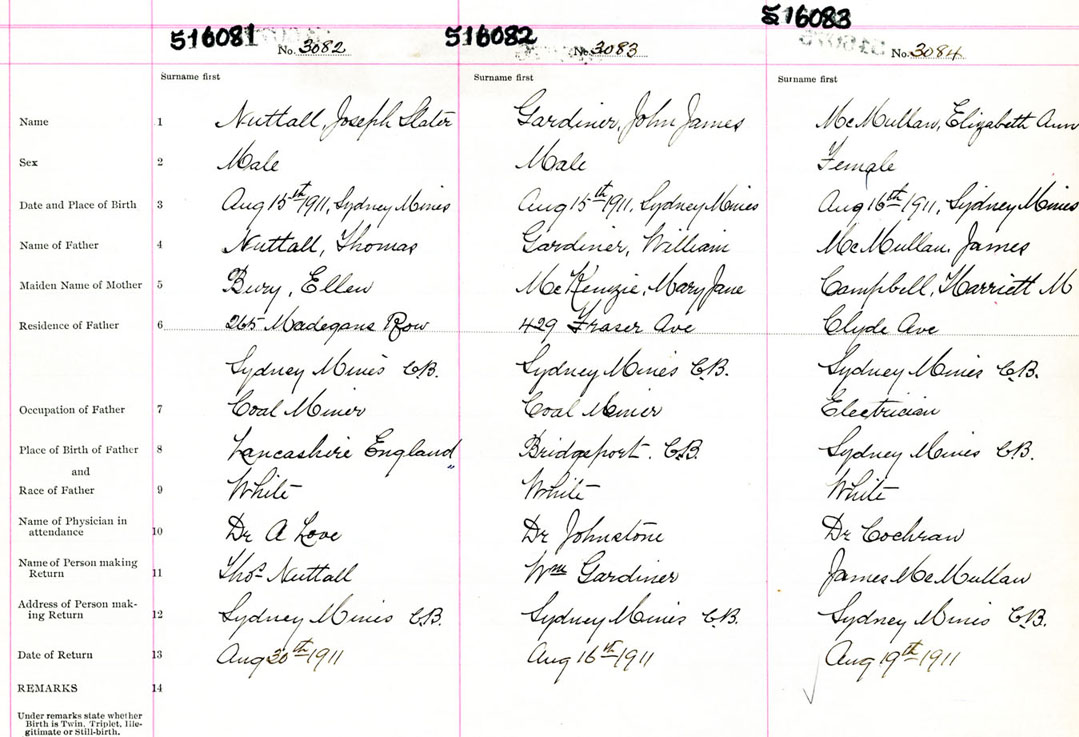 516081 No. 3082 516082 No. 3083 516083 No. 3084
Surname first Surname first Surname first
Name 1 Nuttall, Joseph Slater Gardiner, John James McMullan, Elizabeth Ann
Sex 2 Male Male Female
Date and Place of Birth 3 Aug 15th 1911, Sydney Mines Aug 15th 1911, Sydney Mines Aug 16th 1911, Sydney Mines
Name of Father 4 Nuttall, Thomas Gardiner, William McMullan, James
Maiden Name of Mother 5 Bury, Ellen McKenzie, Mary Jane Campbell, Harriett M
Residence of Father 6 265 Madegans Row 429 Fraser Ave Clyde Ave
Sydney Mines C.B. Sydney Mines C.B. Sydney Mines C.B.
Occupation of Father 7 Coal Miner Coal Miner Electrician
Place of Birth of Father 8 Lancashire England Bridgeport. C.B. Sydney Mines C.B.
and
Race of Father 9 White White White
Name of Physician in
attendance 10 Dr A Love Dr Johnstone Dr Cochran
Name of Person making
Return 11 Thos. Nuttall Wm Gardiner James McMullan
Address of Person mak-
ing Return 12 Sydney Mines C.B. Sydney Mines C.B. Sydney Mines C.B.
Date of Return 13 Aug 30th 1911 Aug 16th 1911 Aug 19th 1911
REMARKS 14
Under remarks state whether
Birth is Twin, Triplet, Ille-
gitimate or Still-birth.